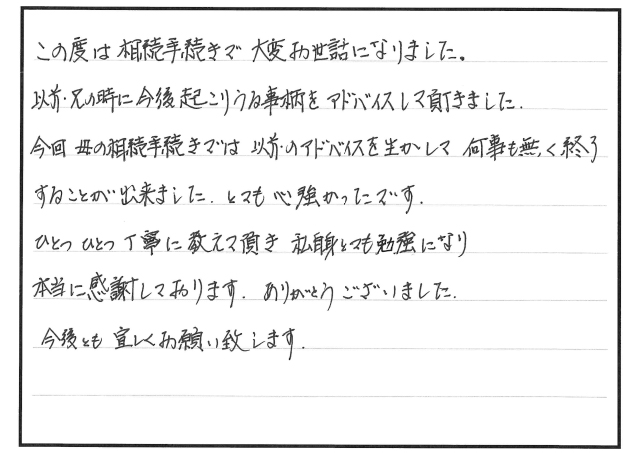 この度は相続手続きで大変お世話になりました。
以前・兄の時に今後起こりうる事柄をアドバイスして頂きました.
今回 母の相続手続きでは 以前のアドバイスを生かして 何事も無く終了
することが出来ました. とても心強かったです.
ひとつ ひとつ 丁寧に教えて頂き 私自身とても勉強になり
本当に感謝しております. ありがとうございました.
今後とも 宜しくお願い致します.